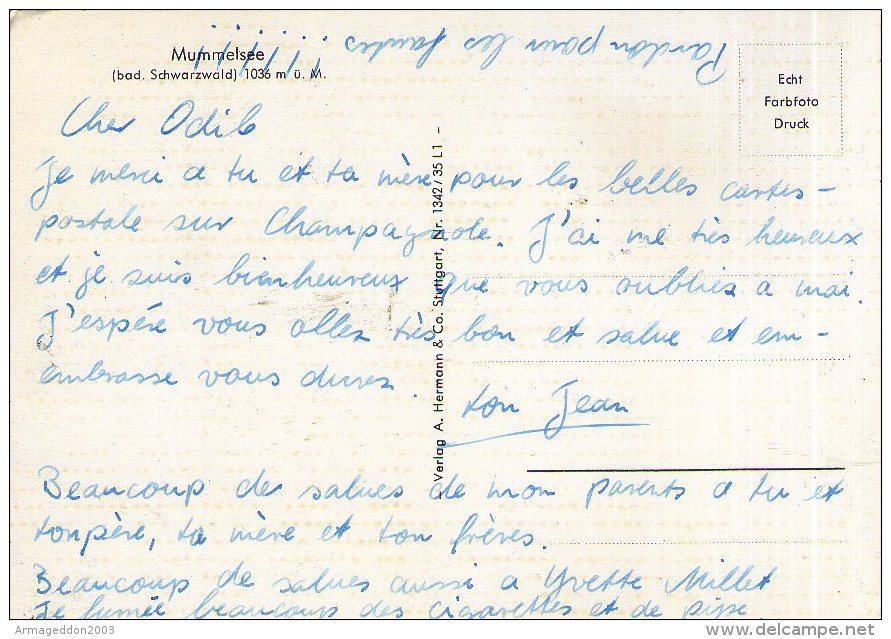 Pardon pour les fautes
Mummelsee
(bad. Schwarzwald) 1036 m ü. M.
Echt
Farbfoto
Druck
Cher Odile
Je merci a tu et ta mère pour les belles cartes-
postale sur Champagnole. J'ai me très heureux
et je suis bienheureux que vous oubliez a moi.
J'espére vous allez très bon et salue et em-
embrasse vous
ton Jean
Verlag A. Hermann & Co. Stuttgart, Nr. 1342/35 L1 -
Beaucoup de salues de mon parents a tu et
tonpère, ta mère et ton frères.
Beaucoup de salues aussi a Yvette Millet
Je fumée beaucoup des cigarettes et de pipe
Armageddon2003
www.delcampe.net